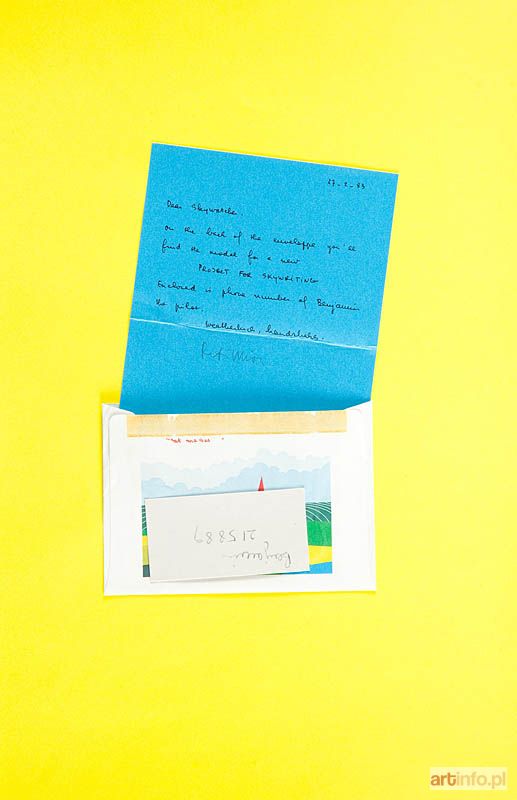 27-2-83
Dear Skywatcher.
on the back of the enveloppe you'll
find the model for a new
PROJECT FOR SKYWRITING
Enclosed is phone number of Benjamin
the pilot.
weatherluck, handshake.
Benjamin
215889
artinfo.pl